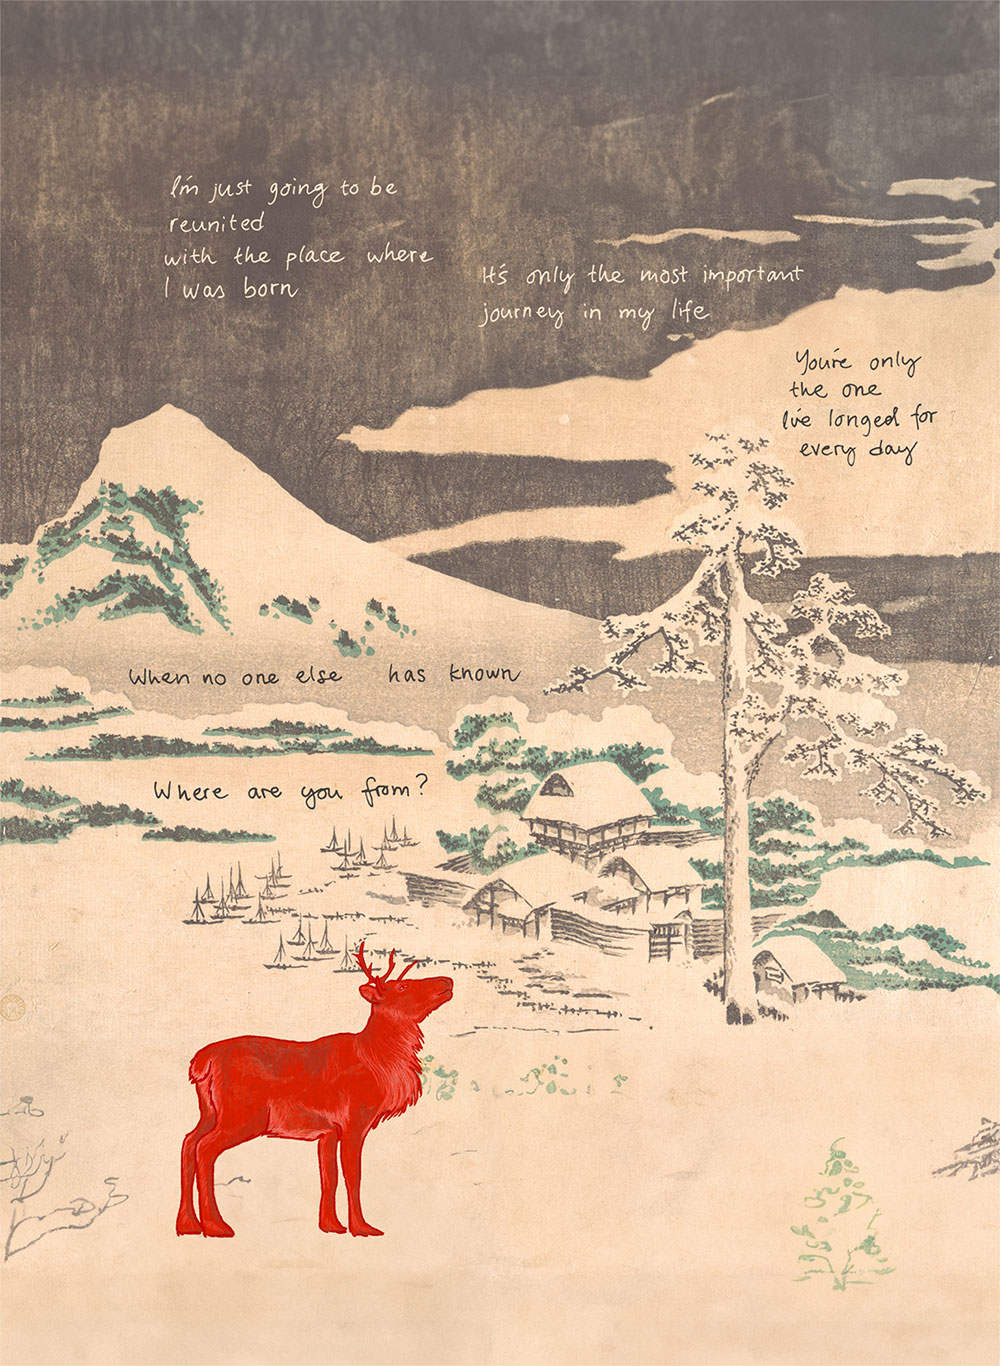 I'm just going to be
reunited
with the place where
I was born
It's only the most important
journey in my life
You're only
the one
I've longed for
every day
When no one else has known
Where are you from?